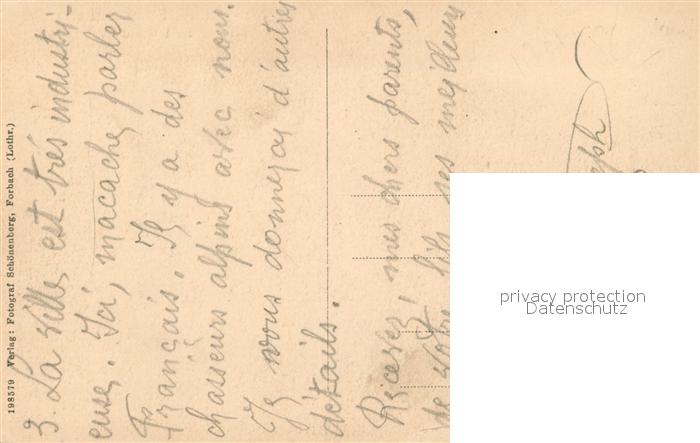 198579 Verlag: Fotograf Schönenberg, Forbach (Lothr.)
3. La ville est très industri-
euse. Ici, macache parler
Français. Il y a des
chasseurs alpins avec nous.
Je vous donnerai d'autres
détails.
Recevez, mes chers parents,
de votre fils ses meilleurs
privacy protection
Datenschutz